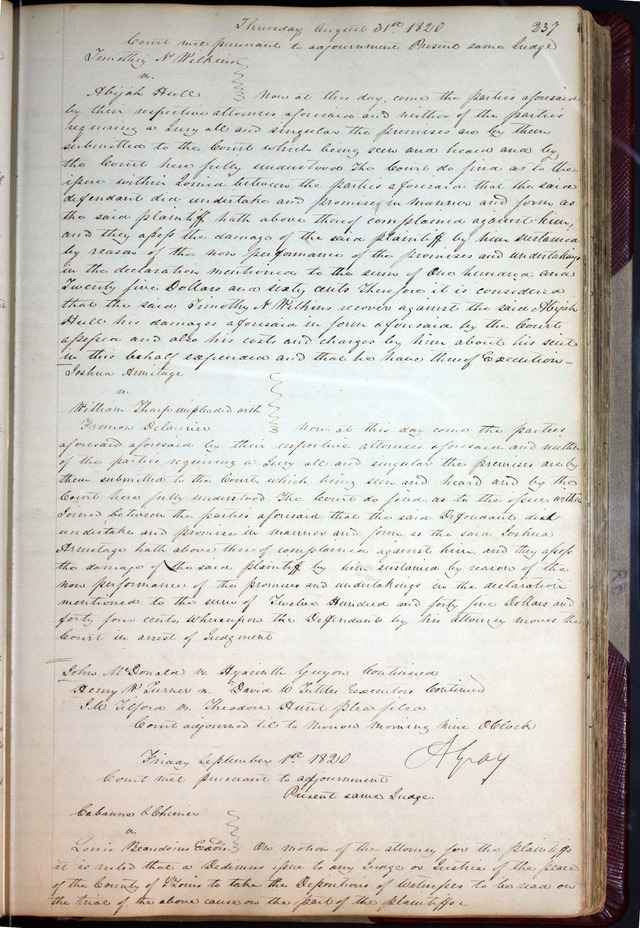 Thursday August 31st 1820 237
Court met pursuant to adjournment Present same Judge
Timothy N Wilkins
vs.
Abijah Hull Now at this day, come the parties aforesaid
by their respective attornies aforesaid and neither of the parties
requiring a Jury all and singular the premises are by them
submitted to the Court which being seen and heard and by
the Court here fully understood The Court do find as to the
issue within Joined between the parties aforesaid that the said
defendant did undertake and promise in manner and form as
the said plaintiff hath above thereof complained against him,
and they assess the damage of the said plaintiff by him sustained
by reason of the non performance of the promises and undertakings
in the declaration mentioned to the sum of One hundred and
Twenty five Dollars and sixty cents Therefore it is considered
that the said Timothy N Wilkins recover against the said Abijah
Hull his damages aforesaid in form aforesaid by the Court
assessed and also his costs and charges by him about his suit
in this behalf expended and that he have thereof Execution—
Joshua Armitage
vs.
William Tharp impleaded with
Francis Delaurier Now at this day come the parties
aforesaid aforesaid by their respective attornies aforesaid and neither
of the parties requiring a Jury all and singular the premises are by
them submitted to the Court, which being seen and heard and by the
Court here fully understood The Court do find as to the issue within
Joined between the parties aforesaid that the said Defendant did
undertake and promise in manner and form as the said Joshua
Armitage hath above thereof complained against him, and they assess
the damage of the said plaintiff by him sustained by reason of the
non performance of the promises and undertakings in the declaration
mentioned to the sum of Twelve Hundred and forty five Dollars and
forty four cents, whereupon the Defendant by his attorney moves the
Court in arrest of Judgment
John McDonald vs. Hyacinth Guyon Continued
Henry W Turner vs. David W Tuttles Executors Continued
J. W Tilford vs. Theodore Hunt plea filed
Court adjourned til to morrow morning nine OClock
A Gray
Friday September 1st 1820
Court met pursuant to adjournment
Present same Judge.
Cabanne &
vs.
Louis Beaudoins On motion of the attorney for the plaintiffs
it is ruled that a Dedimus issue to any Judge or Justice of the peace
of the County of St Louis to take the Depositions of Witnesses to be read on
the trial of the above cause on the part of the plaintiffs